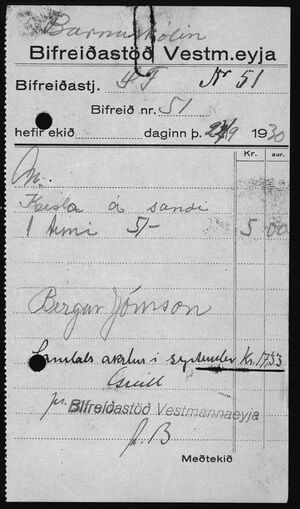 Barnaskólin
Bifreiðastöð Vestm.eyja
Bifreiðastj. Nr 51
Bifreið nr. 51
hefir ekið daginn þ. 27/9 1930
Kr. aur.
Keisla á sandi
1 tími 5/- 5 00
Bergur Jónsson
Samtals akstur í september Kr. 17.33
pr. Bifreiðastöð Vestmannaeyja
Meðtekið